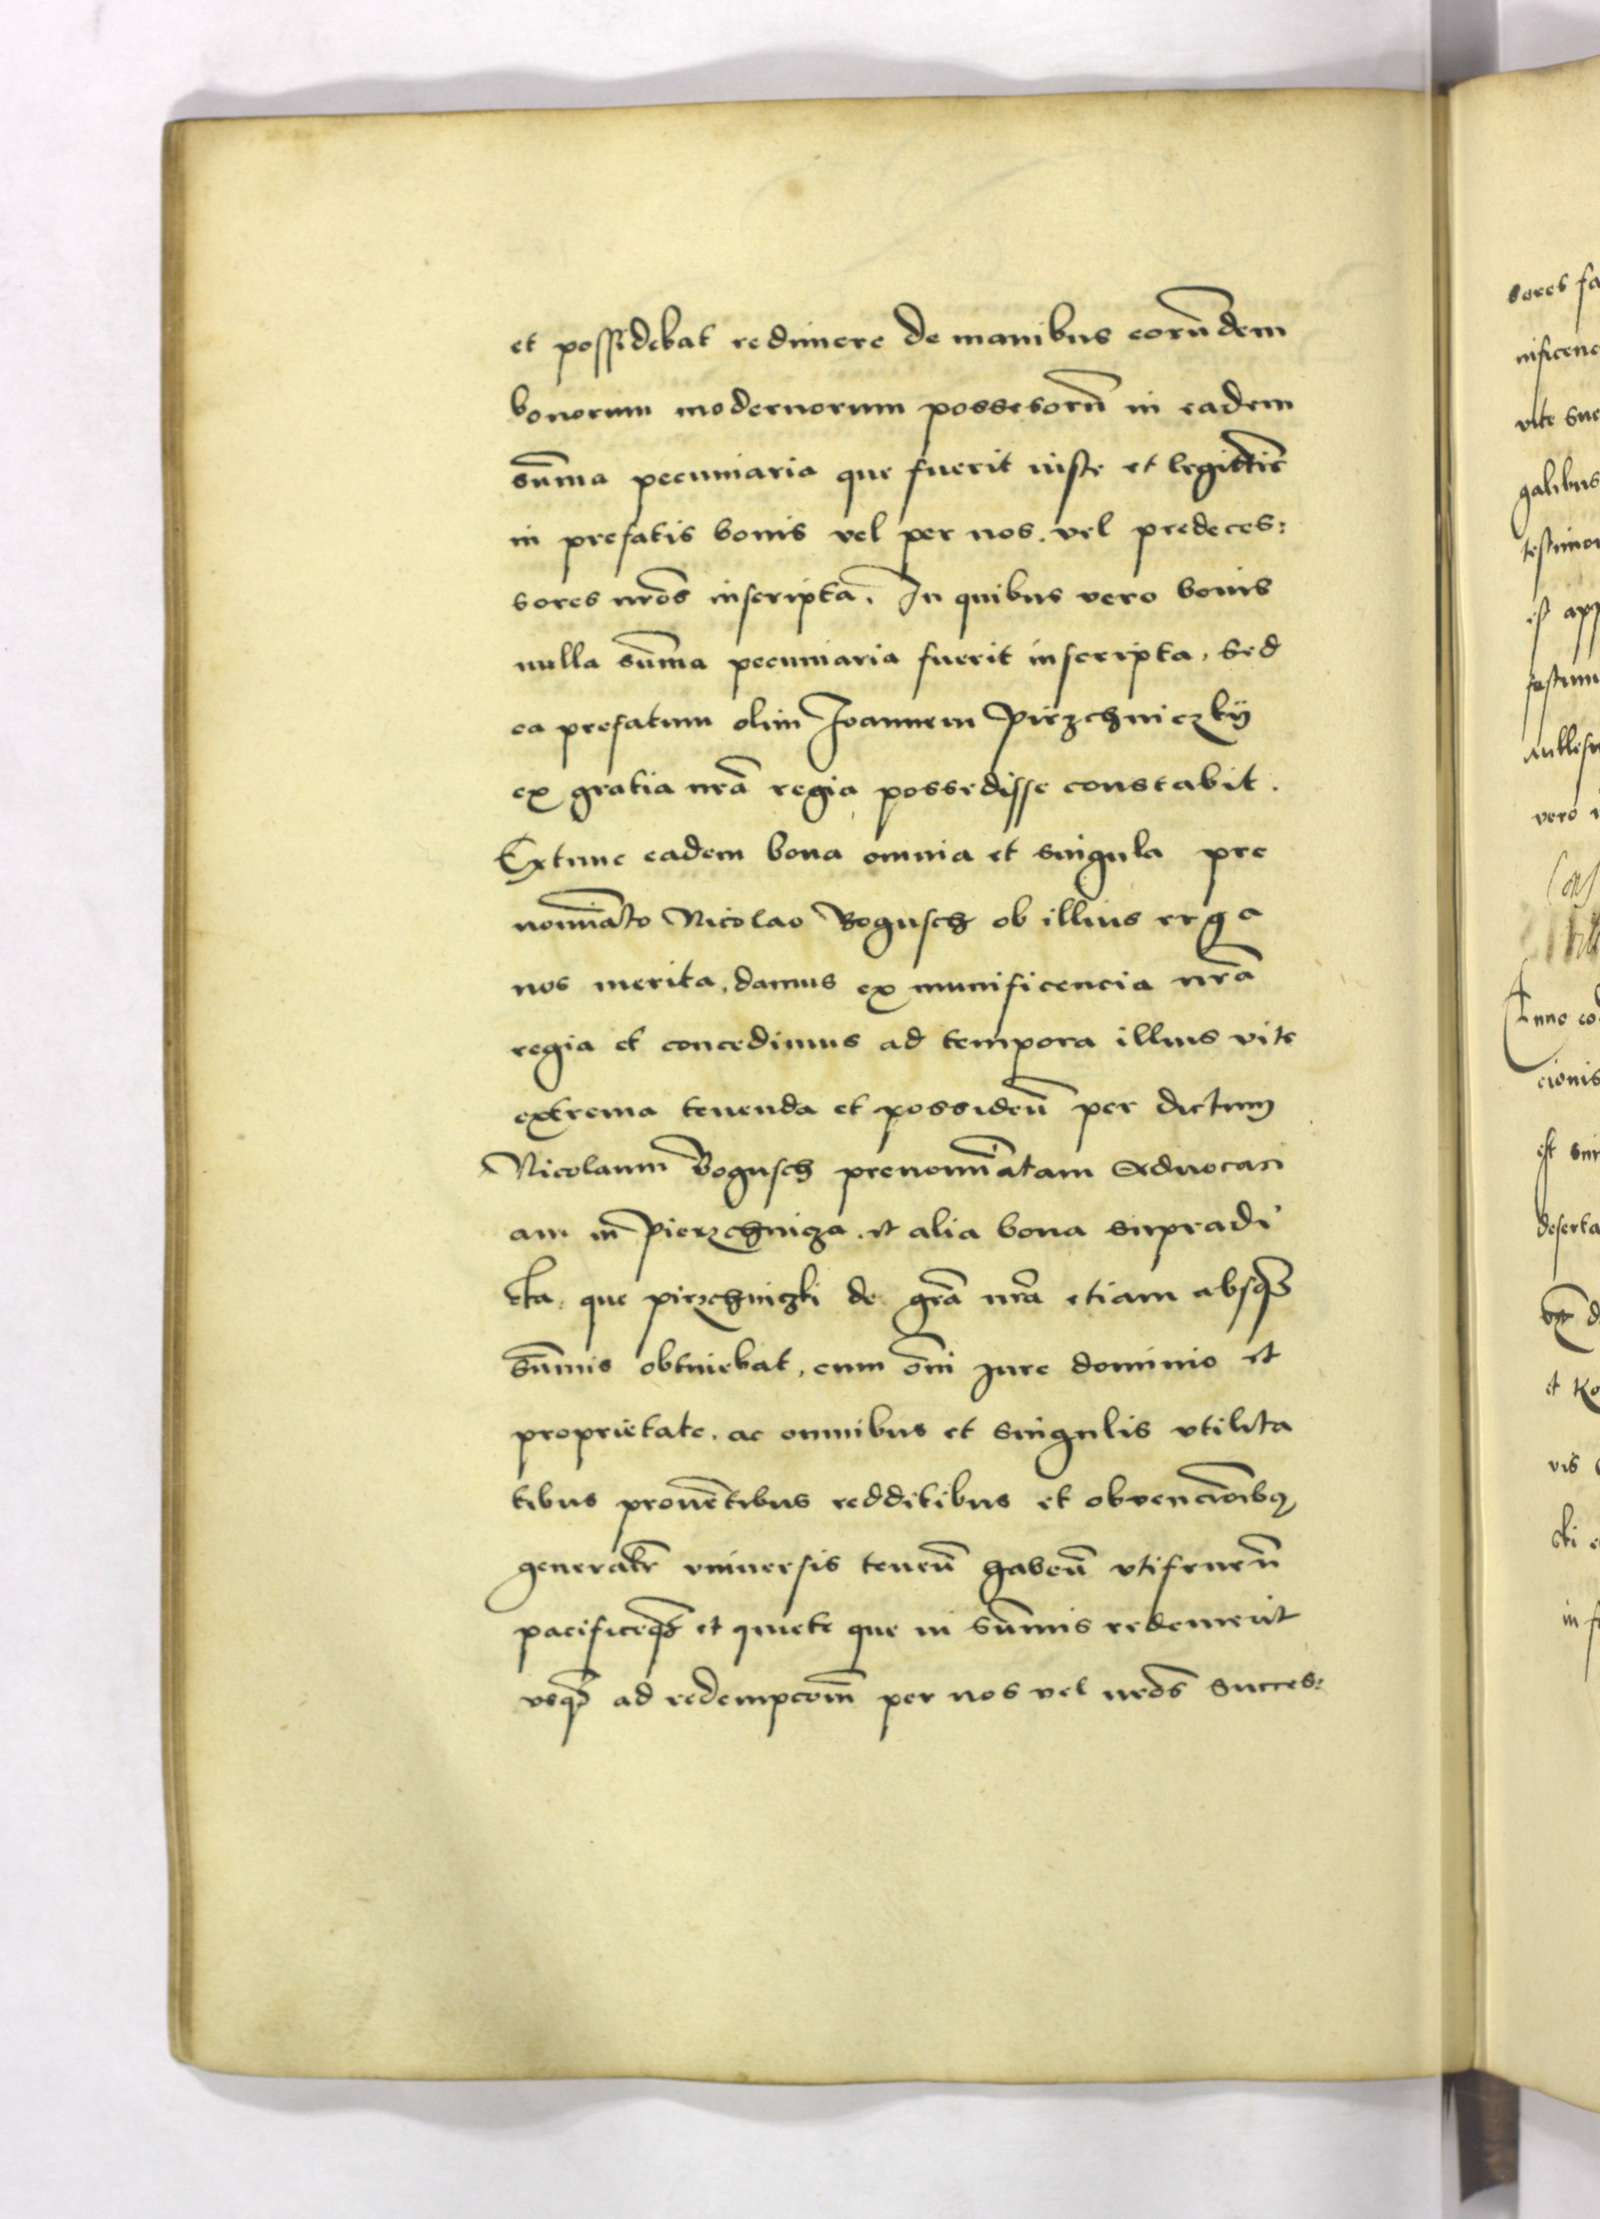 et possidebat redimere de manibus eorũdem
bonorum modernorum possessorũ in eadem
sũma pecuniaria que fuerit iuste et legittie
in prefatis bonis vel per nos. vel predeces:
sores nr̃os inscripta. In quibus vero bonis
nulla sũma pecuniaria fuerit inscripta, sed
ea prefatum olim Joannem Pirzchniczkÿ
ex gratia nrã regia possedisse constabit.
Extunc eadem bona omnia et singula pre
noĩato Nicolao Bogusch ob illius erga
nos merita, damus ex munificencia nrã
regia et concedimus ad tempora illius vite
extrema tenenda et possideñ per dictum
Nicolaum Bogusch prenomĩatam Aduocaci
am in Pierzchnicza. et alia bona supradi
cta, que pirzchniczki de grã nrã etiam absq̃
sũmis obtniebat, cum oñi Jure dominio et
proprietate. ac omnibus et singulis vtilita
tibus prouẽtibus redditibus et obuencioĩbq
generalr̃ vniuersis teneñ habeñ vtifrueñ
pacificeq̃ et quiete que in sũmis redemerit
vsq̃ ad redempcom̃ per nos vel nr̃os succes:
sores fa
nificenc
vite sue
galibus
testimon
est app
festum
vero i
Anno eo
cionis
est
deserta
d
et Ko
vis
cti e
in f